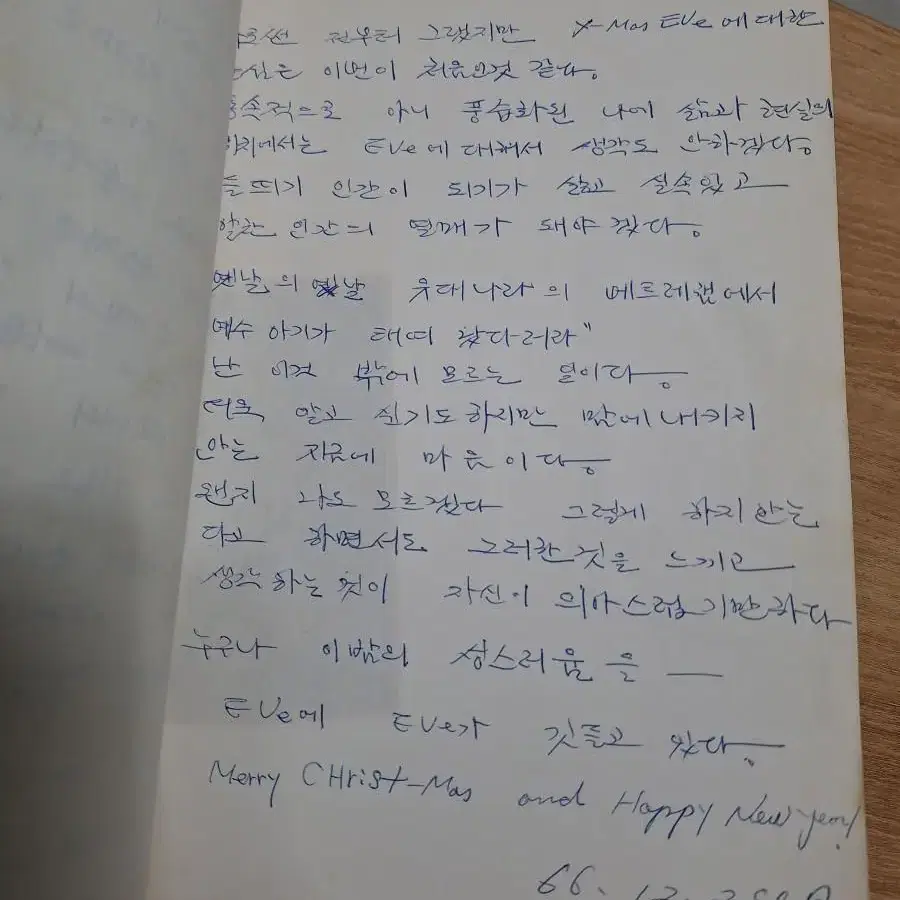 전부터 그랬지만 X-Mas EVe에 대한
이번이 처음인것 같다.
아니 풍습화된 나에 삶과 현실의
EVe에 대해서 생각도 안하겠다.
인간이 되기가 싫고 실속있고
인간의 열매가 돼야겠다.
옛날의 옛날 유대나라의 베트레햄에서
예수 아기가 태여 났다러라"
난 이것 밖에 모르는 일이다.
더욱 알고 싶기도하지만 맘에 내키지
안는 지금에 마음이다.
왠지 나도 모르겠다 그렇게 하지 안는
다고 하면서도 그러한것을 느끼고
생각하는 것이 자신이 의아스럽기만하다
누구나 이밤의 성스러움을 —
EVe에 EVe가 깃들고 있다.
Merry CHrist-Mas and Happy New year!
66. 12.